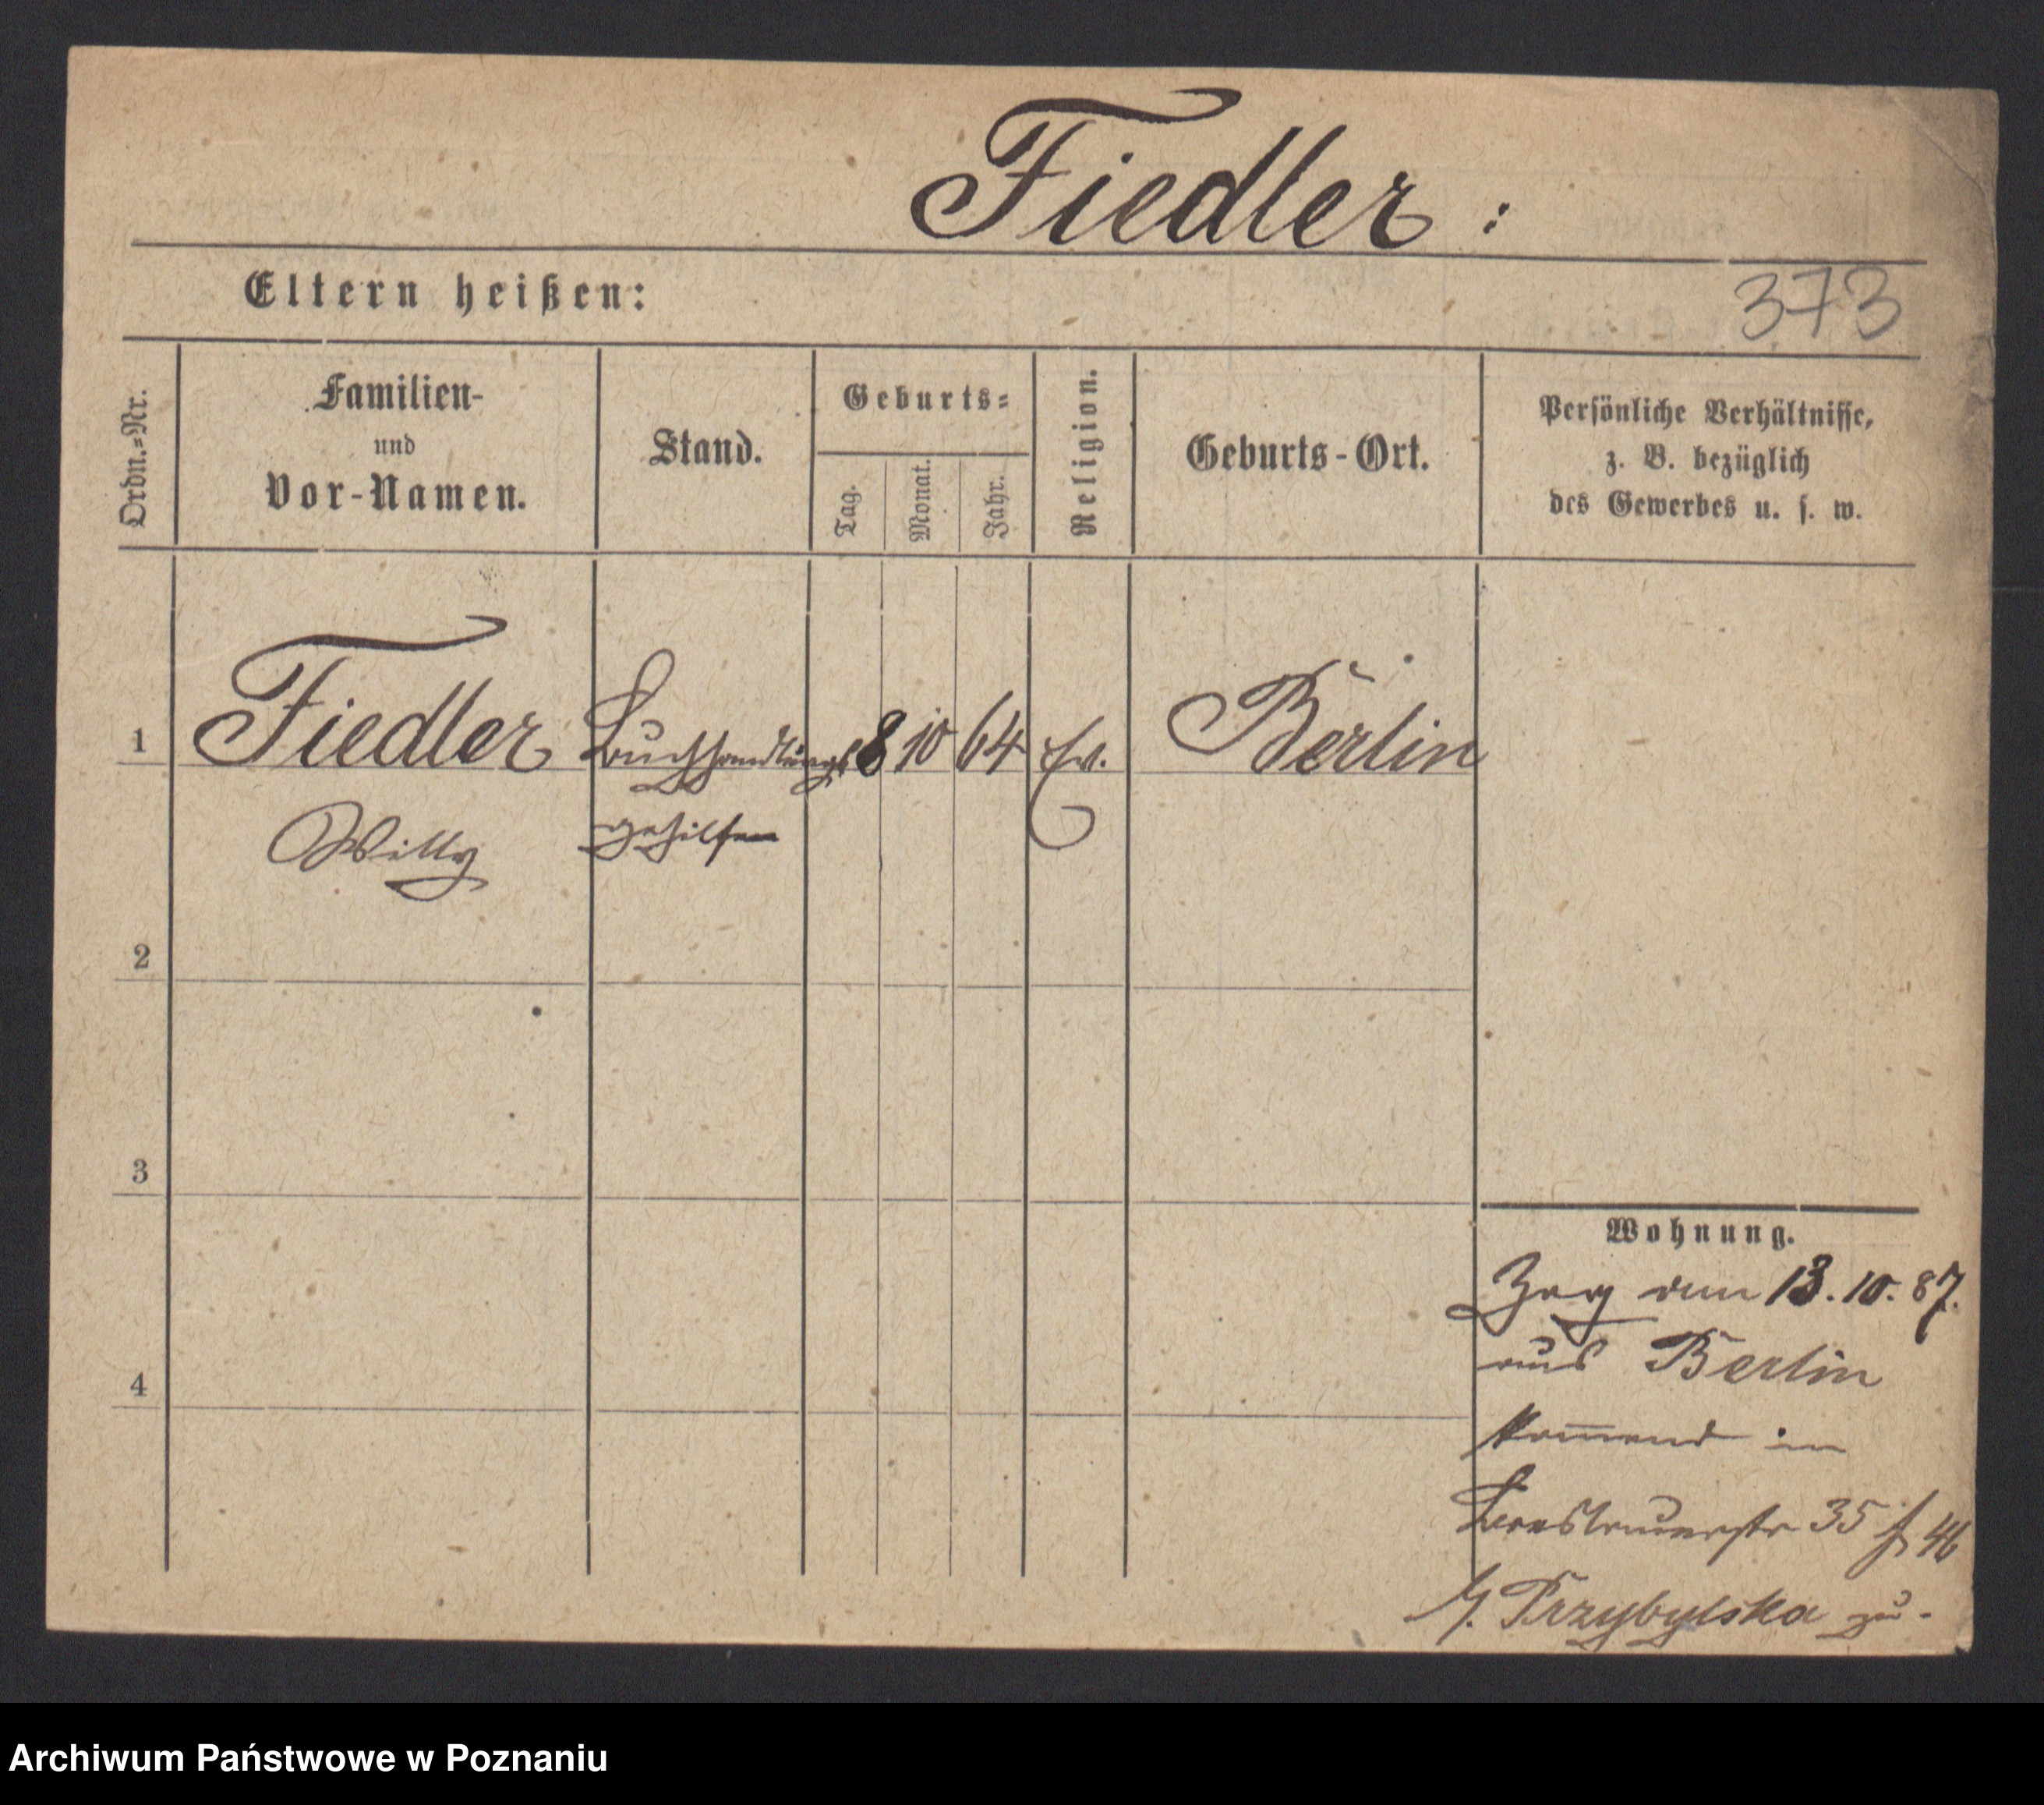 Fiedler :
Eltern heißen:
373
Ordn.=Nr.
Familien-
und
Vor-Namen.
Stand.
Geburts=
Tag.
Monat.
Jahr.
Religion.
Geburts-Ort.
Persönliche Verhältnisse,
z. B. bezüglich
des Gewerbes u. s. w.
1 Fiedler Buchhandlungs 8 10 64 Ev. Berlin
Willy gehilfe
2
3
4
Wohnung.
Zog den 13.10.87.
aus Berlin
kom̅end in
Breslauerstr 35 f 46
Przybylska zu.
Archiwum Państwowe w Poznaniu